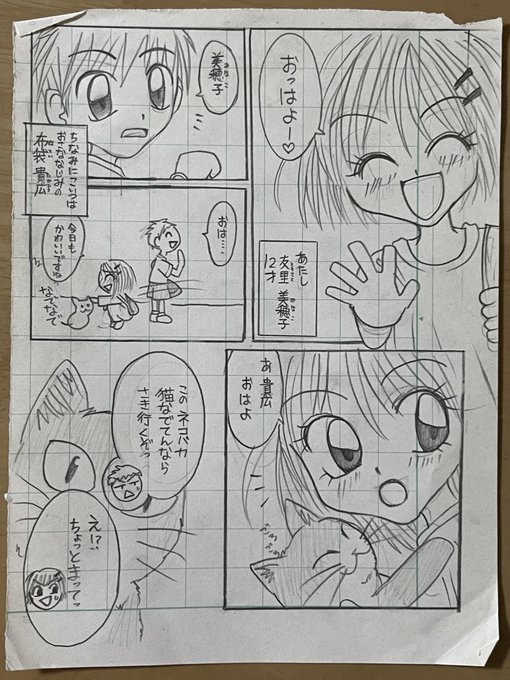 おっはよー♡
あたし
友里 美穂子
12才
美穂子
ちなみにこいつは
おさななじみの
布袋 貴広
おは……
今日も
かわいいですね
なでなで
あ 貴広
おはよ
この ネコバカ
猫なでてんなら
さき行くぞっ
え!?
ちょっとまってっ